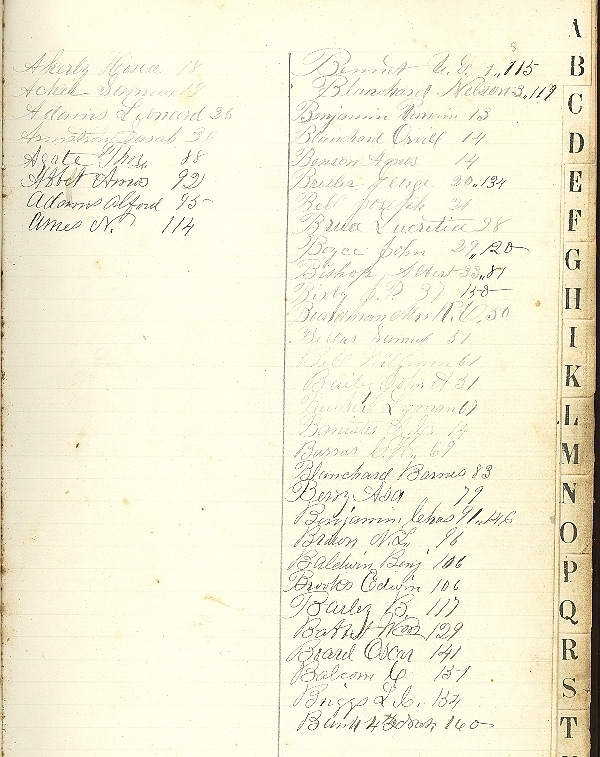 Akerly Hiria 18
Acker Samuel 19
Adams Leonard 26
Armstrong Sarah 36
Agate Thos. 88
Abbot Amos 92
Adams Alford 95
Ames N. 114
Bennet 1,,115
8
Blanchard Nelson 3,,119
Benjamin 13
Blanchard Orvill 14
Benson Agnes 14
Butler George 20,,134
Bell Joseph 21
Brua Lucretia 28
Boyce John 29,,120
Bishop Albert 33,,81
Bixby J. P. 37 150
Boardman Mrs R. O. 50
Samuel 51
Bell William 61
Bailey John A 51
Lyman 67
Banister
Barras 69
Blanchard Barnes 83
Berry Asa 79
Benjamin Chas 91,,146
Brown N. L. 96
Baldwin Benj 106
Brooks Edwin 106
Barley B. 117
129
Board Oscar 141
Balcom C 157
Briggs L. C. 134
Bunk 160
A
B
C
D
E
F
G
H
I
K
L
M
N
O
P
Q
R
S
T